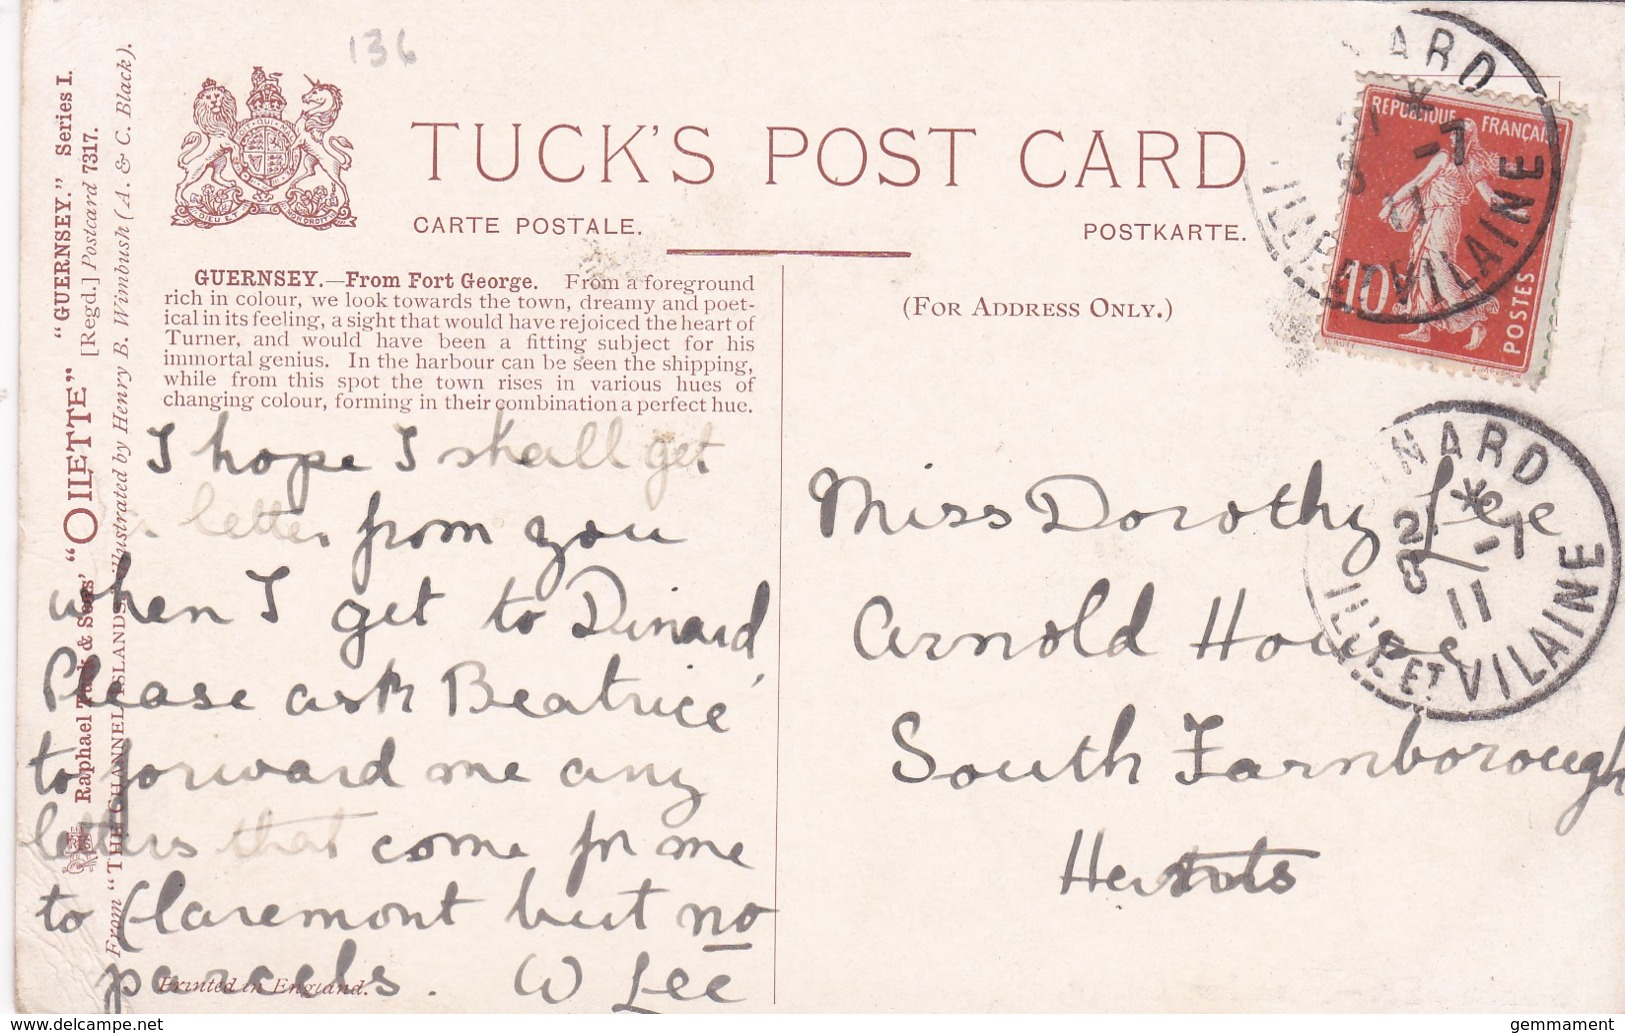 136
TUCK'S POST CARD
CARTE POSTALE.
POSTKARTE.
(FOR ADDRESS ONLY.)
GUERNSEY.—From Fort George. From a foreground
rich in colour, we look towards the town, dreamy and poet-
ical in its feeling, a sight that would have rejoiced the heart of
Turner, and would have been a fitting subject for his
immortal genius. In the harbour can be seen the shipping,
while from this spot the town rises in various hues of
changing colour, forming in their combination a perfect hue.
I hope I shall get
a letter from you
when I get to Dinard
Please ask Beatrice
to forward me any
letters that come for me
to Claremont but no
parcels. W Lee
Printed in England.
Raphael Tuck & Sons' "OILETTE" "GUERNSEY." Series I.
[Regd.] Postcard 7317.
From "THE CHANNEL ISLANDS, illustrated by Henry B. Wimbush (A. & C. Black).
DIEU ET MON DROIT
Miss Dorothy Lee
Arnold House
South Farnborough
Hants
REPUBLIQUE FRANÇAISE
10
POSTES
ARD
-7
ET VILAINE
NARD
21 -7
11
ILLE ET VILAINE
gemmament